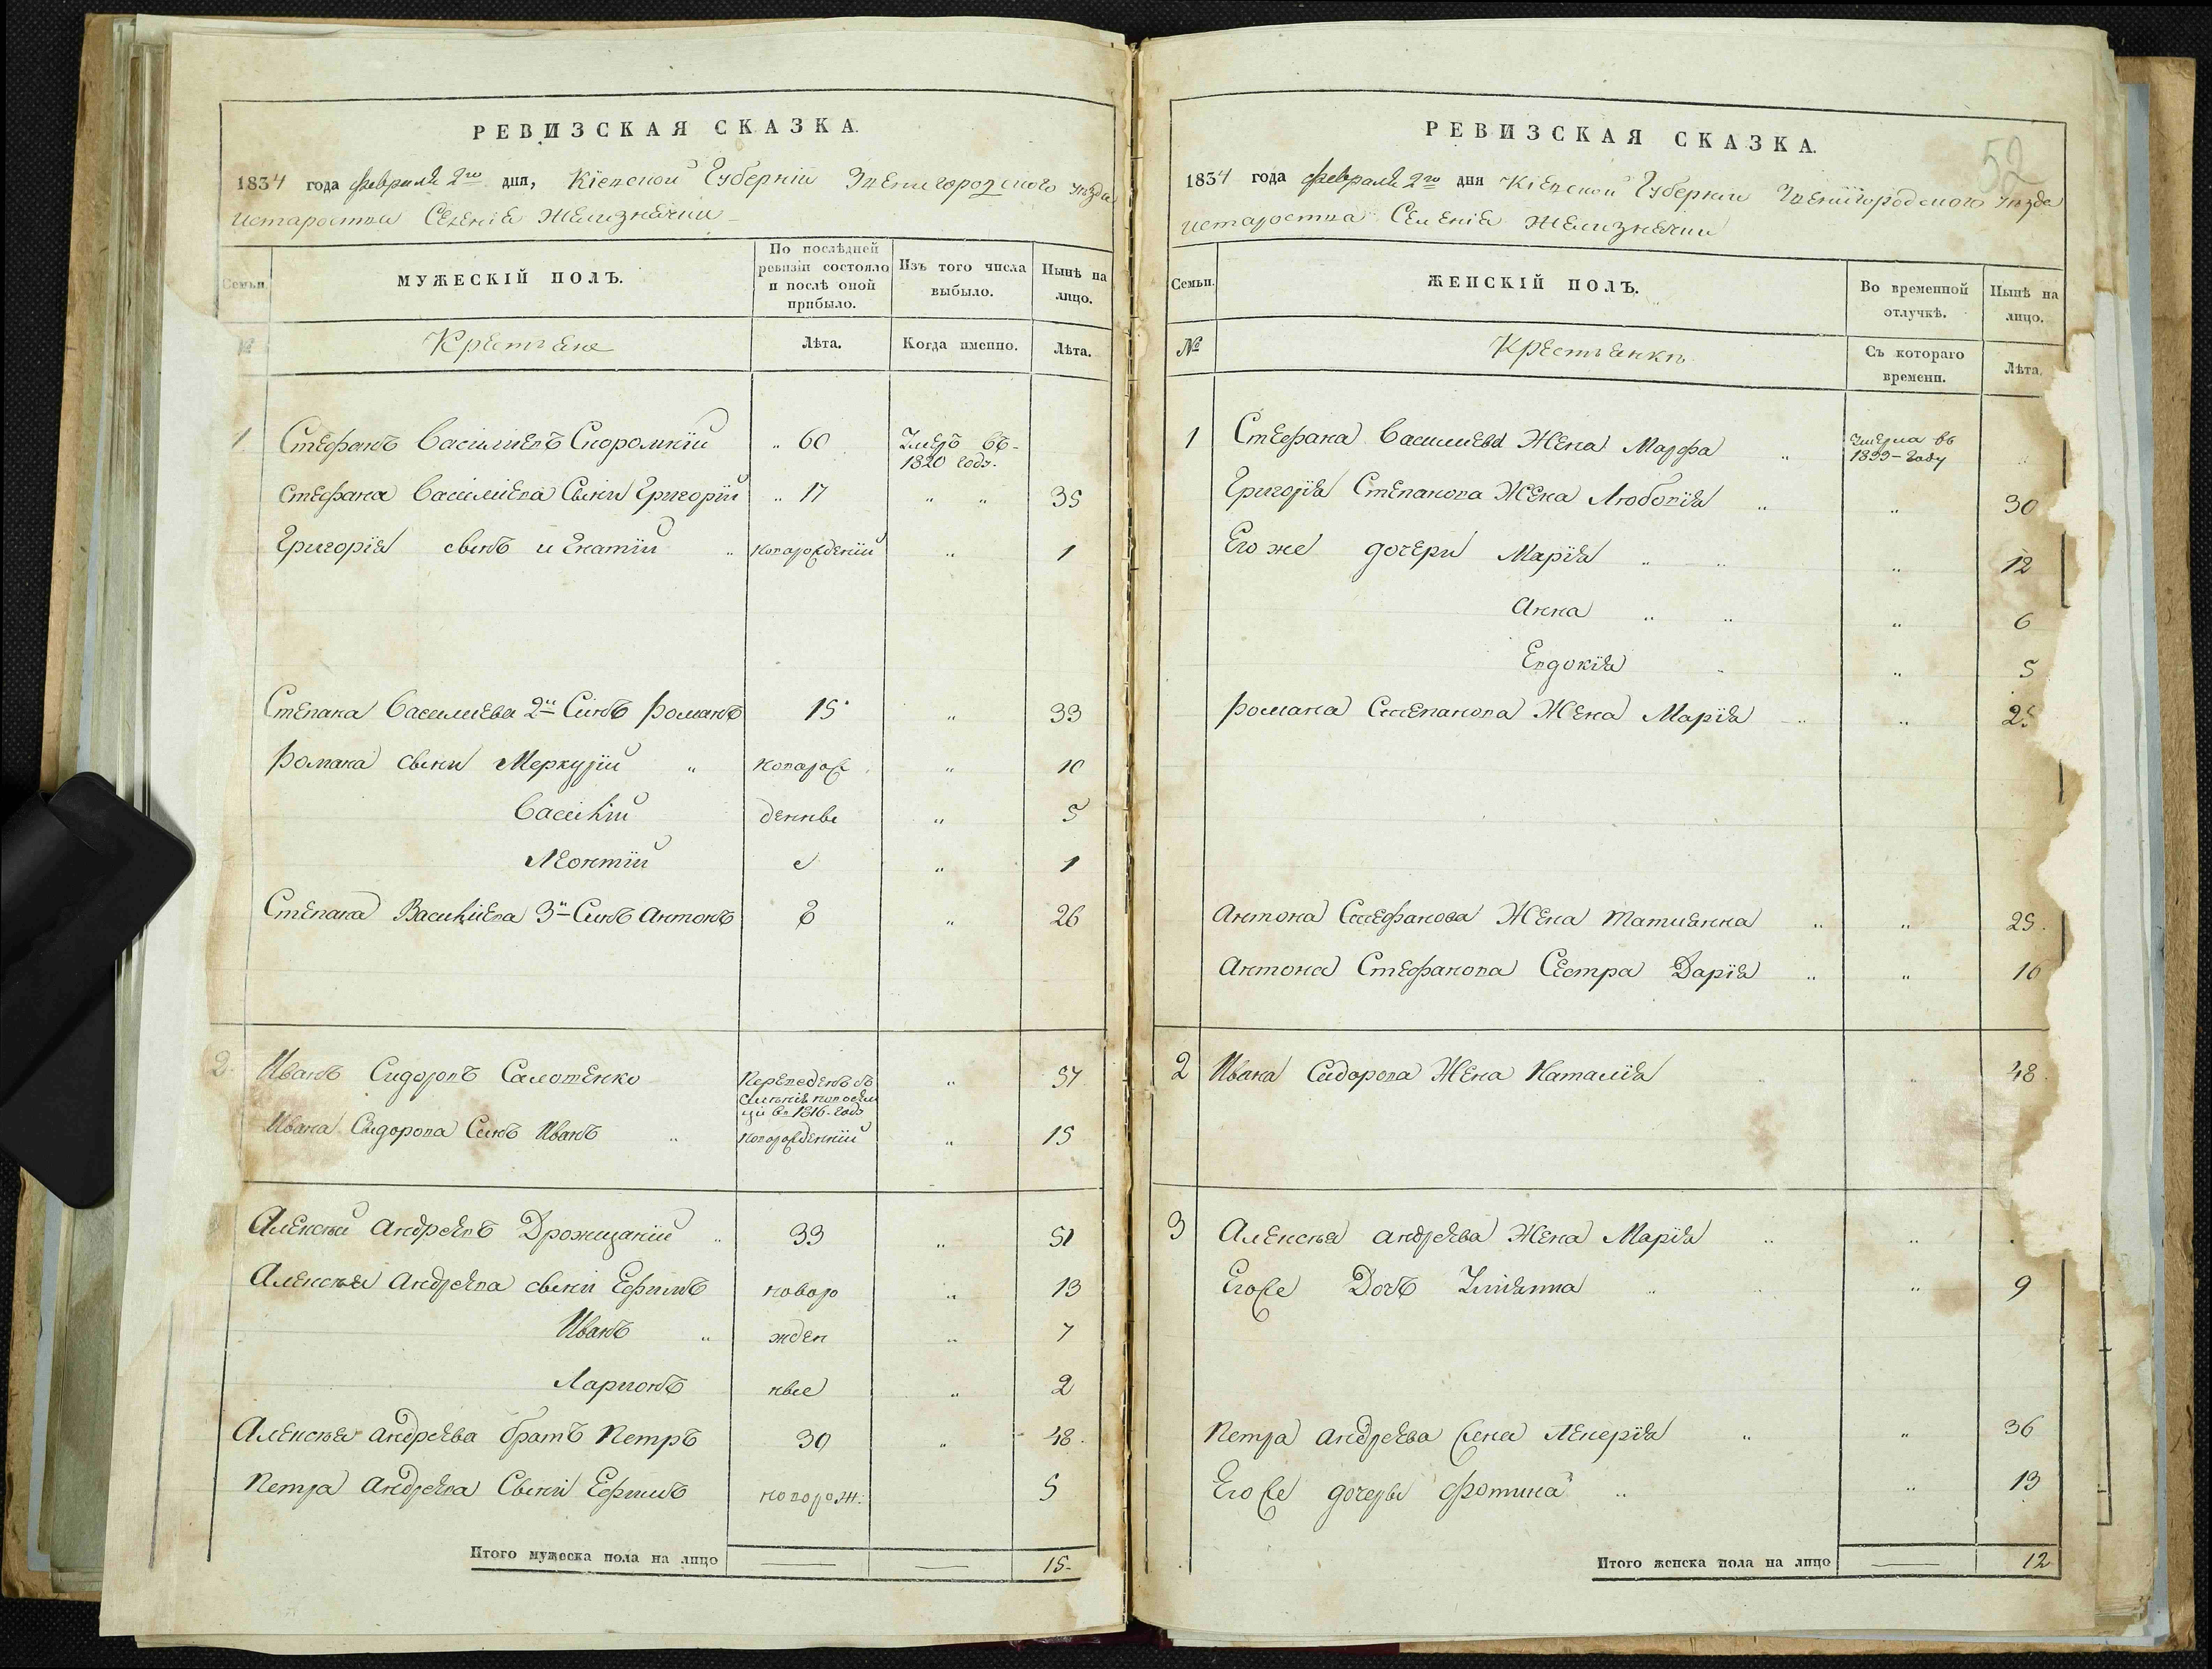 РЕВИЗСКАЯ СКАЗКА.
1834 года февраля 2го дня, Кіевской Губерніи Звенигородского уѣзда
истароства Селенія Желизнячки
Семьи.
МУЖЕСКІЙ ПОЛЪ.
По послѣдней ревизіи состояло и послѣ оной прибыло.
Изъ того числа выбыло.
Нынѣ на лицо.
№
Крестьяне
Лѣта.
Когда именно.
Лѣта.
1 Стефанъ Василиевъ Скоромній „ 60 Умеръ въ 1820 годȣ.
Стефана Василиева Сыни Григорій „ 17 „ „ 35
Григорія сынъ игнатій „ новорожденій „ 1
Степана Василиева 2й Синъ Романъ 15 „ 33
Романа сыни Меркурій „ новорож „ 10
Василій денны „ 5
Леонтій е „ 1
Степана Василиева 3й Синъ Антонъ 8 „ 26
2. Иванъ Сидоровъ Самотенко Переведенъ съ въ 1816 годȣ „ 37
Ивана Сидорова Синъ Иванъ „ новорожденній „ 15
Алексѣй Андреявъ Дрожщаній „ 33 „ 51
Алексѣя Андреява сыни Ефимъ новоро „ 13
Иванъ „ жден „ 7
Ларионъ ные „ 2
Алексѣя андреява братъ Петръ 30 „ 48.
Петра Андреява Сыни Ефимъ новорож: 5
Итого мужеска пола на лицо — — 15.
52
РЕВИЗСКАЯ СКАЗКА.
1834 года февраля 2го дня Кіевской Губерніи Звенигородского уѣзда
истароства Селенія Желизнячки
Семьи.
ЖЕНСКІЙ ПОЛЪ.
Во временной отлучкѣ.
Нынѣ на лицо.
№
Крестьянкѣ
Съ котораго времени.
Лѣта.
1 Стефана Василиева Жена Марфа „ Умерла въ 1833 году „
Григорія Степанова Жена Любовія „ „ 30
Его же дочери Марія „ „ „ 12
Анна „ „ „ 6
Евдокія „ „ 5
Романа Степанова Жена Марія „ „ 25
Антона Стефанова Жена Татиянна „ „ 25.
Антона Стефанова Сестра Дарія „ „ 16
2 Ивана Сидорова Жена Наталія „ „ 48.
3 Алексѣя андреява Жена Марія „ „
Егоже Дочъ Улиянна „ „ „ 9
Петра андреява жена Лекерія „ „ 36
Егоже дочеры Фотина „ „ 13
Итого женска пола на лицо — 12